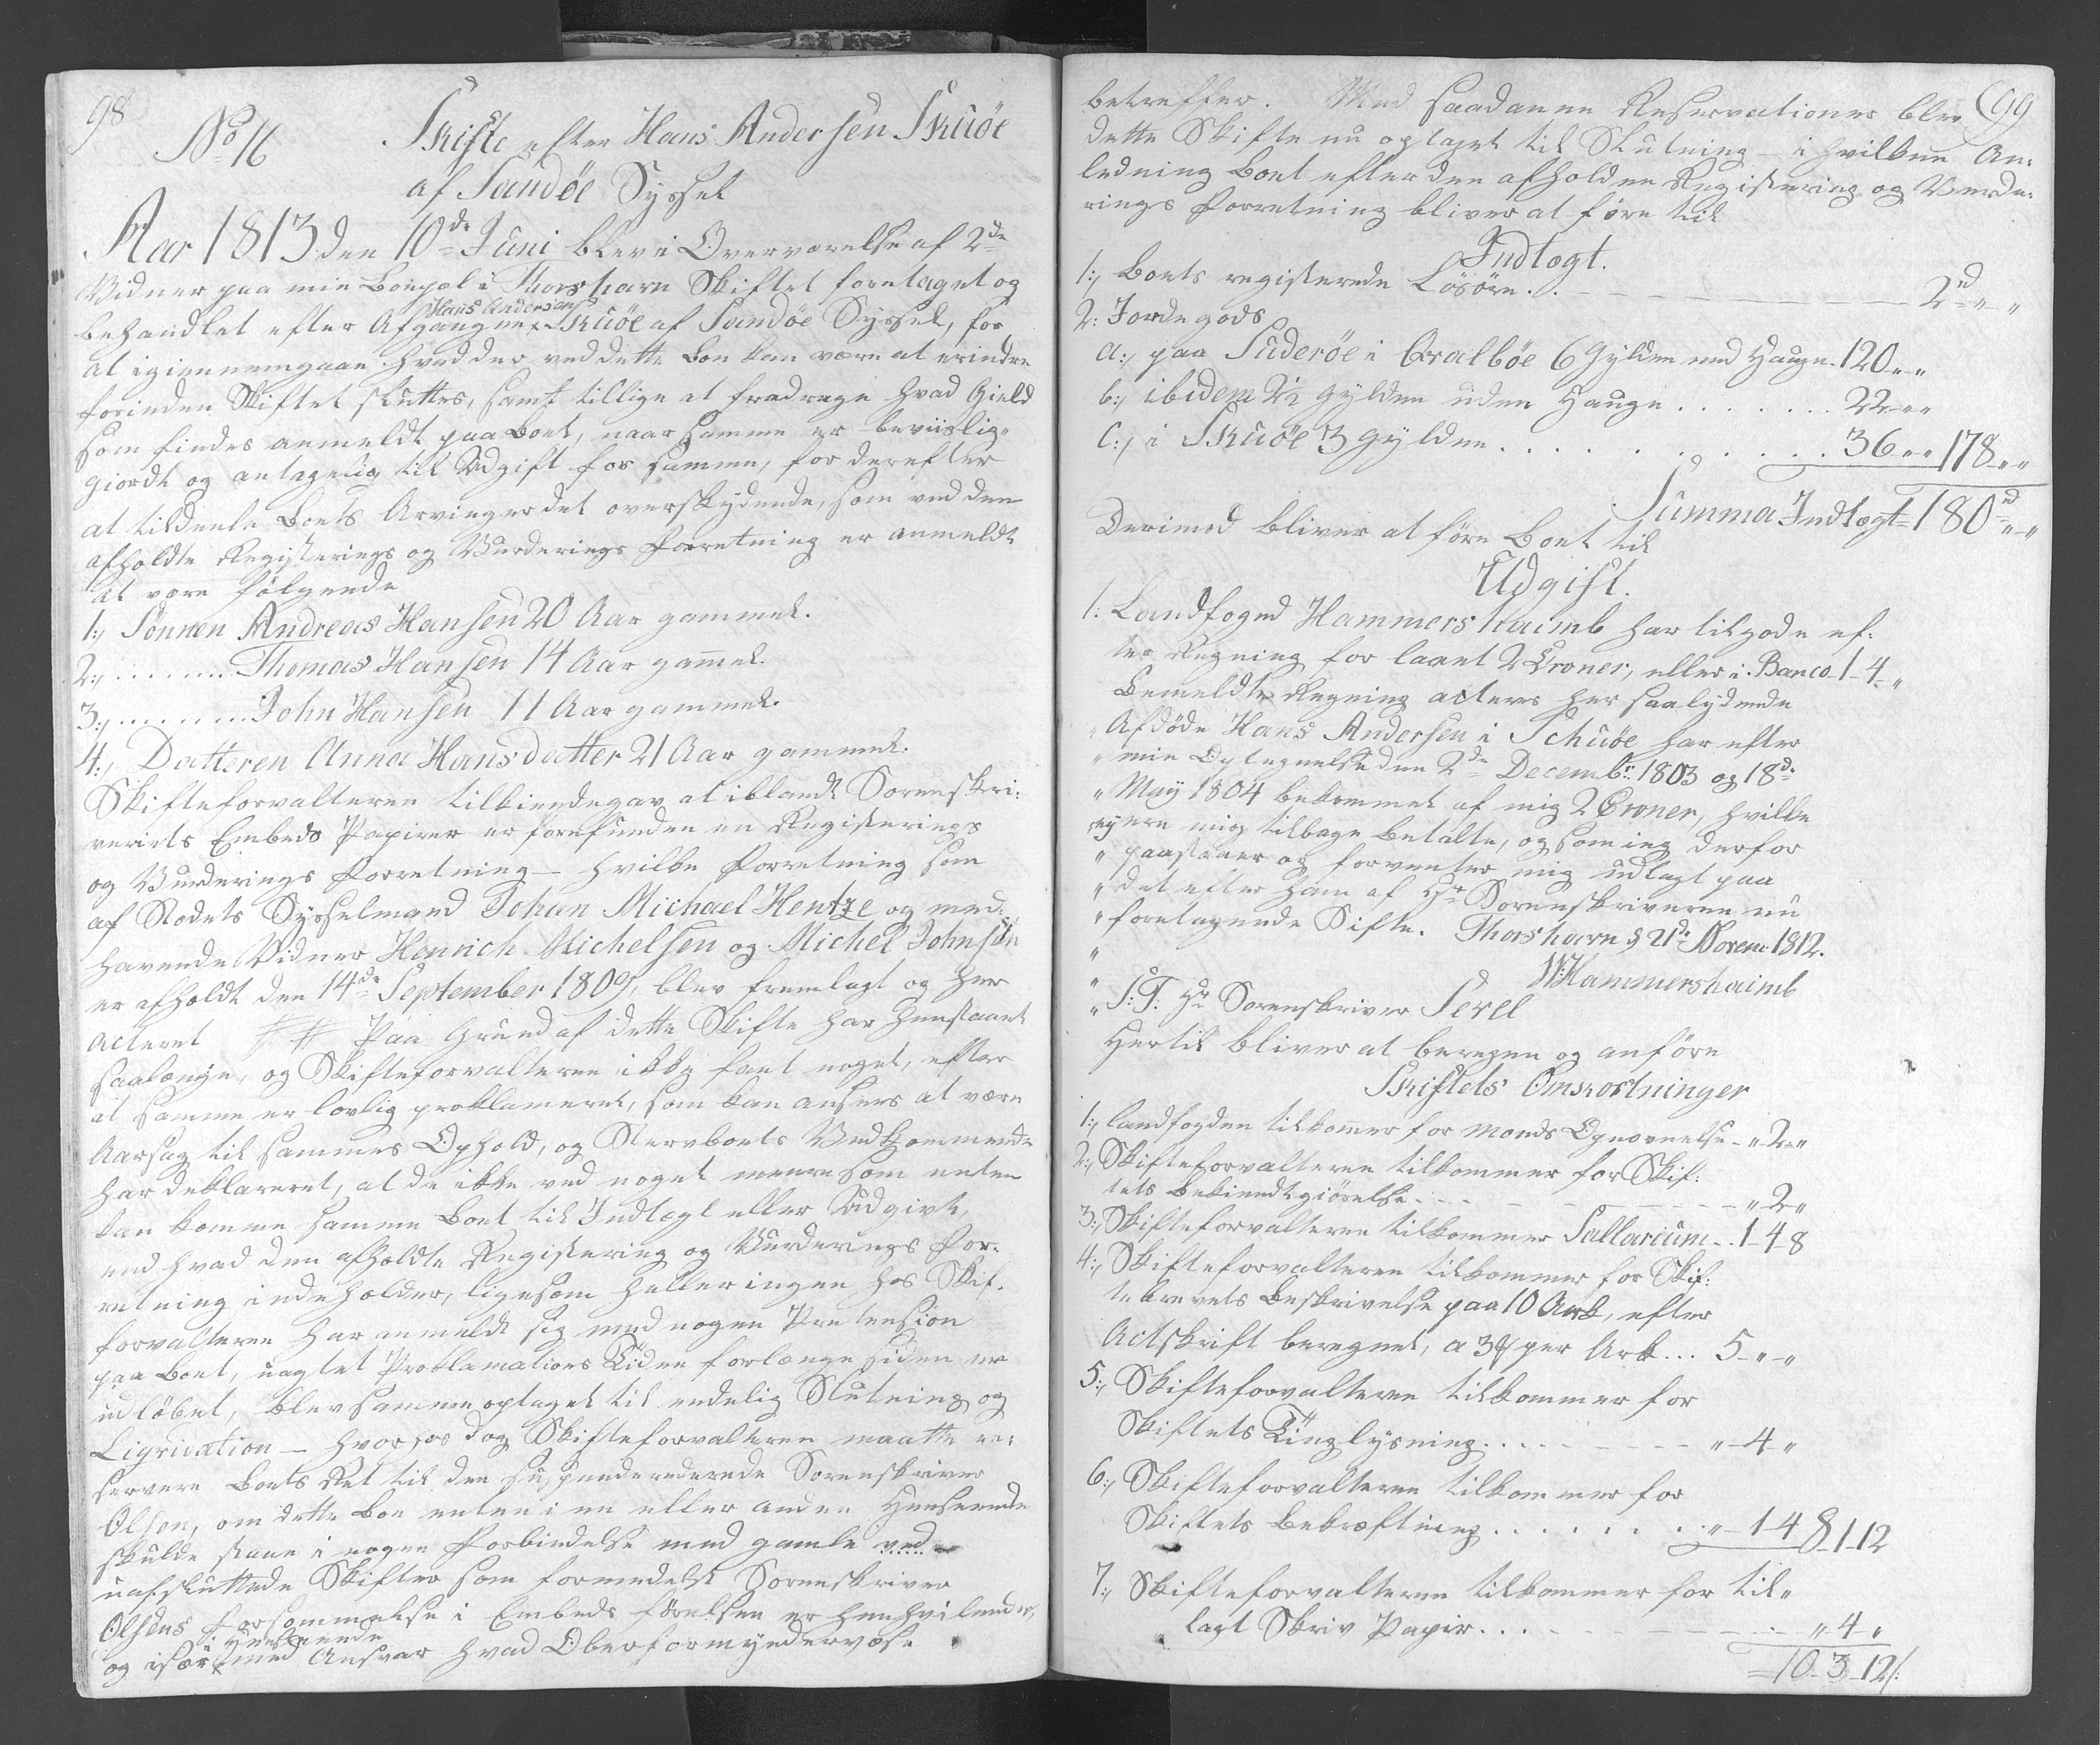 98
No 16 Skifte efter Hans Andersen Skuöe
af Sandöe Syssel
Aar 1813 den 10de Juni blev i Overværelse af 2de
Vidner paa min Boepæl i Thorshavn Skiftet foretaget og
behandlet efter Afgangne Hans Andersen Skuöe af Sandöe Syssel, for
at igiennemgaae hvad der ved dette Boe kan være at erindre
forinden Skiftet sluttes, samt tillige at fradrage hvad Gield
som findes anmeldt paa Boet, naar samme er beviislig-
giordt og antagelig til Udgift for samme, for derefter
at tildeele Boets Arvinger det overskydende, som ved den
afholdte Registerings og Vurderings Forretning er anmeldt
at være følgende
1:, Sönnen Andreas Hansen 20 Aar gammel.
2:, ........ Thomas Hansen 14 Aar gammel.
3:, ......... John Hansen 11 Aar gammel.
4:, Datteren Anna Hansdatter 21 Aar gammel.
Skifteforvalteren tilkiendegav at iblandt Sorenskri:
veriets Embeds Papirer er forefunden en Registerings
og Vurderings Forretning – hvilke Forretning som
af Stedets Sysselmand Johan Michael Hentze og med:
havende Vidner Henrich Michelsen og Michel Johnsen
er afholdt den 14de September 1809, blev fremlagt og her
acteret # # Paa Grund af dette Skifte har henstaaet
saalænge, og Skifteforvalteren ikke fant noget, efter
at samme er lovlig proklameret, som kan ansees at være
Aarsag til sammes Ophold, og Stervboets Vedkommende
har deklareret, at de ikke ved noget meere som enten
kan komme samme Boet til Indtægt eller Udgivt,
end hvad den afholdte Registering og Vurderings For:
retning indeholder, ligesom heller ingen hos Skif-
forvalteren har anmeldt sig med nogen Pretension
paa Boet, uagtet Proklamations Tiden forlænge siden er
udløbet, blev samme optaget til endelig Slutning og
Liqvidation – hvorhos dog Skifteforvalteren maatte re:
servere Boets Ret til den suspenderede Sorenskriver
Olsen, om dette Boe enten i en eller anden Henseende
skulde staae i nogen Forbindelse med gamle ved
uafsluttede Skifter som formedelst Sorenskriver
Olsens Forsømmelse i Embeds førelsen er henhvilende,
og især i Henseende med Ansvar hvad Oberformynderväse
99
betreffer. Med saadanne Reservationer blev
dette Skifte nu optaget til Slutning – i hvilken An:
ledning Boet efter den afholdne Registering og Vurde:
rings Forretning bliver at före til
Indtægt.
1:, Boets registerede Lösöre. . – – – – – – 2 rd „ „
2: Jordegods
a:, paa Suderöe i Qvalböe 6 Gylden med Hauge. 120 „ „
b:, ibidem 2½ Gylden uden Hauge . . . . . . . 22 „ „
c:, i Skuöe 3 Gylden . . . . . . . . . . . . 36 „ „ 178 „ „
Summa Indtægt 180 rd „ „
Derimod bliver at före Boet til
Udgift.
1: Landfoged Hammershaimb har tilgode ef:
ter Regning for laant 2 Croner, eller i Banco 1 - 4 - „
Bemeldte Regning acteres her saalydende
„ Afdöde Hans Andersen i Schuöe har efter
„ min Optegnelse den 2de Decembr: 1803 og 18de
„ May 1804 bekommet af mig 2 Croner, hvilke
ey ere mig tilbage betalte, og som ieg derfor
„ paastaaer og forventer mig udlagt paa
„ det efter ham af Hr Sorenskriveren nu
„ foretagende Sifte. Thorshavn d 21de Novem: 1812.
„ W: Hammershaimb
„ S: T: Hr Sorenskriver Serel
Hertil bliver at beregne og anföre
Skiftets Omkostninger
1:, Landfogden tilkommer for Mænds Opnævnelse - „ 2 - „
2:, Skifteforvalteren tilkommer for Skif:
tets Bekiendtgiörelse . . . – – – – – „ 2 „
3:, Skifteforvalteren tilkommer Sallarium . . 1 - 4 8
4:, Skifteforvalteren tilkommer for Skif:
tebrevets Beskrivelse paa 10 Ark, efter
Actskrift beregnet, a 3 per Ark . . . 5 - „ - „
5:, Skifteforvalteren tilkommer for
Skiftets Tinglysning . . . . – – – – „ - 4 - „
6:, Skifteforvalteren tilkommer for
Skiftets Bekræftning . . . . . . . . „ - 1 4 8 1 - 12
7:, Skifteforvalteren tilkommer for til-
lagt Skriv Papir . . . – – – – – „ 4 „
10 - 3 - 12 /: